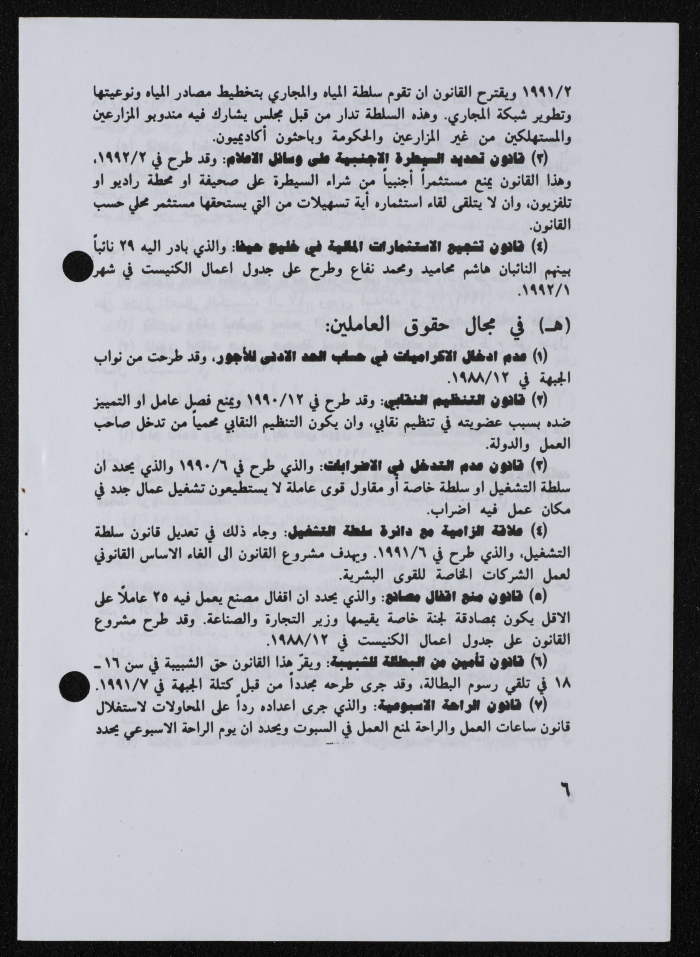 ١٩٩١/٢ ويقترح القانون ان تقوم سلطة المياه والمجاري بتخطيط مصادر المياه ونوعيتها
وتطوير شبكة المجاري. وهذه السلطة تدار من قبل مجلس يشارك فيه مندوبو المزارعين
والمستهلكين من غير المزارعين والحكومة وباحثون أكاديميون.
(٣) قانون تحديد السيطرة الاجنبية على وسائل الاعلام: وقد طرح في ١٩٩٢/٢،
وهذا القانون يمنع مستثمراً أجنبياً من شراء السيطرة على صحيفة او محطة راديو او
تلفزيون، وان لا يتلقى لقاء استثماره أية تسهيلات من التي يستحقها مستثمر محلي حسب
القانون.
(٤) قانون تشجيع الاستثمارات المالية في خليج حيفا: والذي بادر اليه ٢٩ نائباً
بينهم النائبان هاشم محاميد ومحمد نفاع وطرح على جدول اعمال الكنيست في شهر
١٩٩٢/١.
(هـ) في مجال حقوق العاملين:
(١) عدم ادخال الاكراميات في حساب الحد الادنى للأجور، وقد طرحت من نواب
الجبهة في ١٩٨٨/١٢.
(٢) قانون التنظيم النقابي: وقد طرح في ١٩٩٠/١٢ ويمنع فصل عامل او التمييز
ضده بسبب عضويته في تنظيم نقابي، وان يكون التنظيم النقابي محمياً من تدخل صاحب
العمل والدولة.
(٣) قانون عدم التدخل في الاضرابات: والذي طرح في ١٩٩٠/٦ والذي يحدد ان
سلطة التشغيل او سلطة خاصة أو مقاول قوى عاملة لا يستطيعون تشغيل عمال جدد في
مكان عمل فيه اضراب.
(٤) علاقة الزامية مع دائرة سلطة التشغيل: وجاء ذلك في تعديل قانون سلطة
التشغيل، والذي طرح في ١٩٩١/٦. ويهدف مشروع القانون الى الغاء الاساس القانوني
لعمل الشركات الخاصة للقوى البشرية.
(٥) قانون منع اقفال مصانع: والذي يحدد ان اقفال مصنع يعمل فيه ٢٥ عاملاً على
الاقل يكون بمصادقة لجنة خاصة يقيمها وزير التجارة والصناعة. وقد طرح مشروع
القانون على جدول اعمال الكنيست في ١٩٨٨/١٢.
(٦) قانون تأمين من البطالة للشبيبة: ويقرّ هذا القانون حق الشبيبة في سن ١٦ ـ
١٨ في تلقي رسوم البطالة، وقد جرى طرحه مجدداً من قبل كتلة الجبهة في ١٩٩١/٧.
(٧) قانون الراحة الاسبوعية: والذي جرى اعداده رداً على المحاولات لاستغلال
قانون ساعات العمل والراحة لمنع العمل في السبوت ويحدد ان يوم الراحة الاسبوعي يحدد
٦